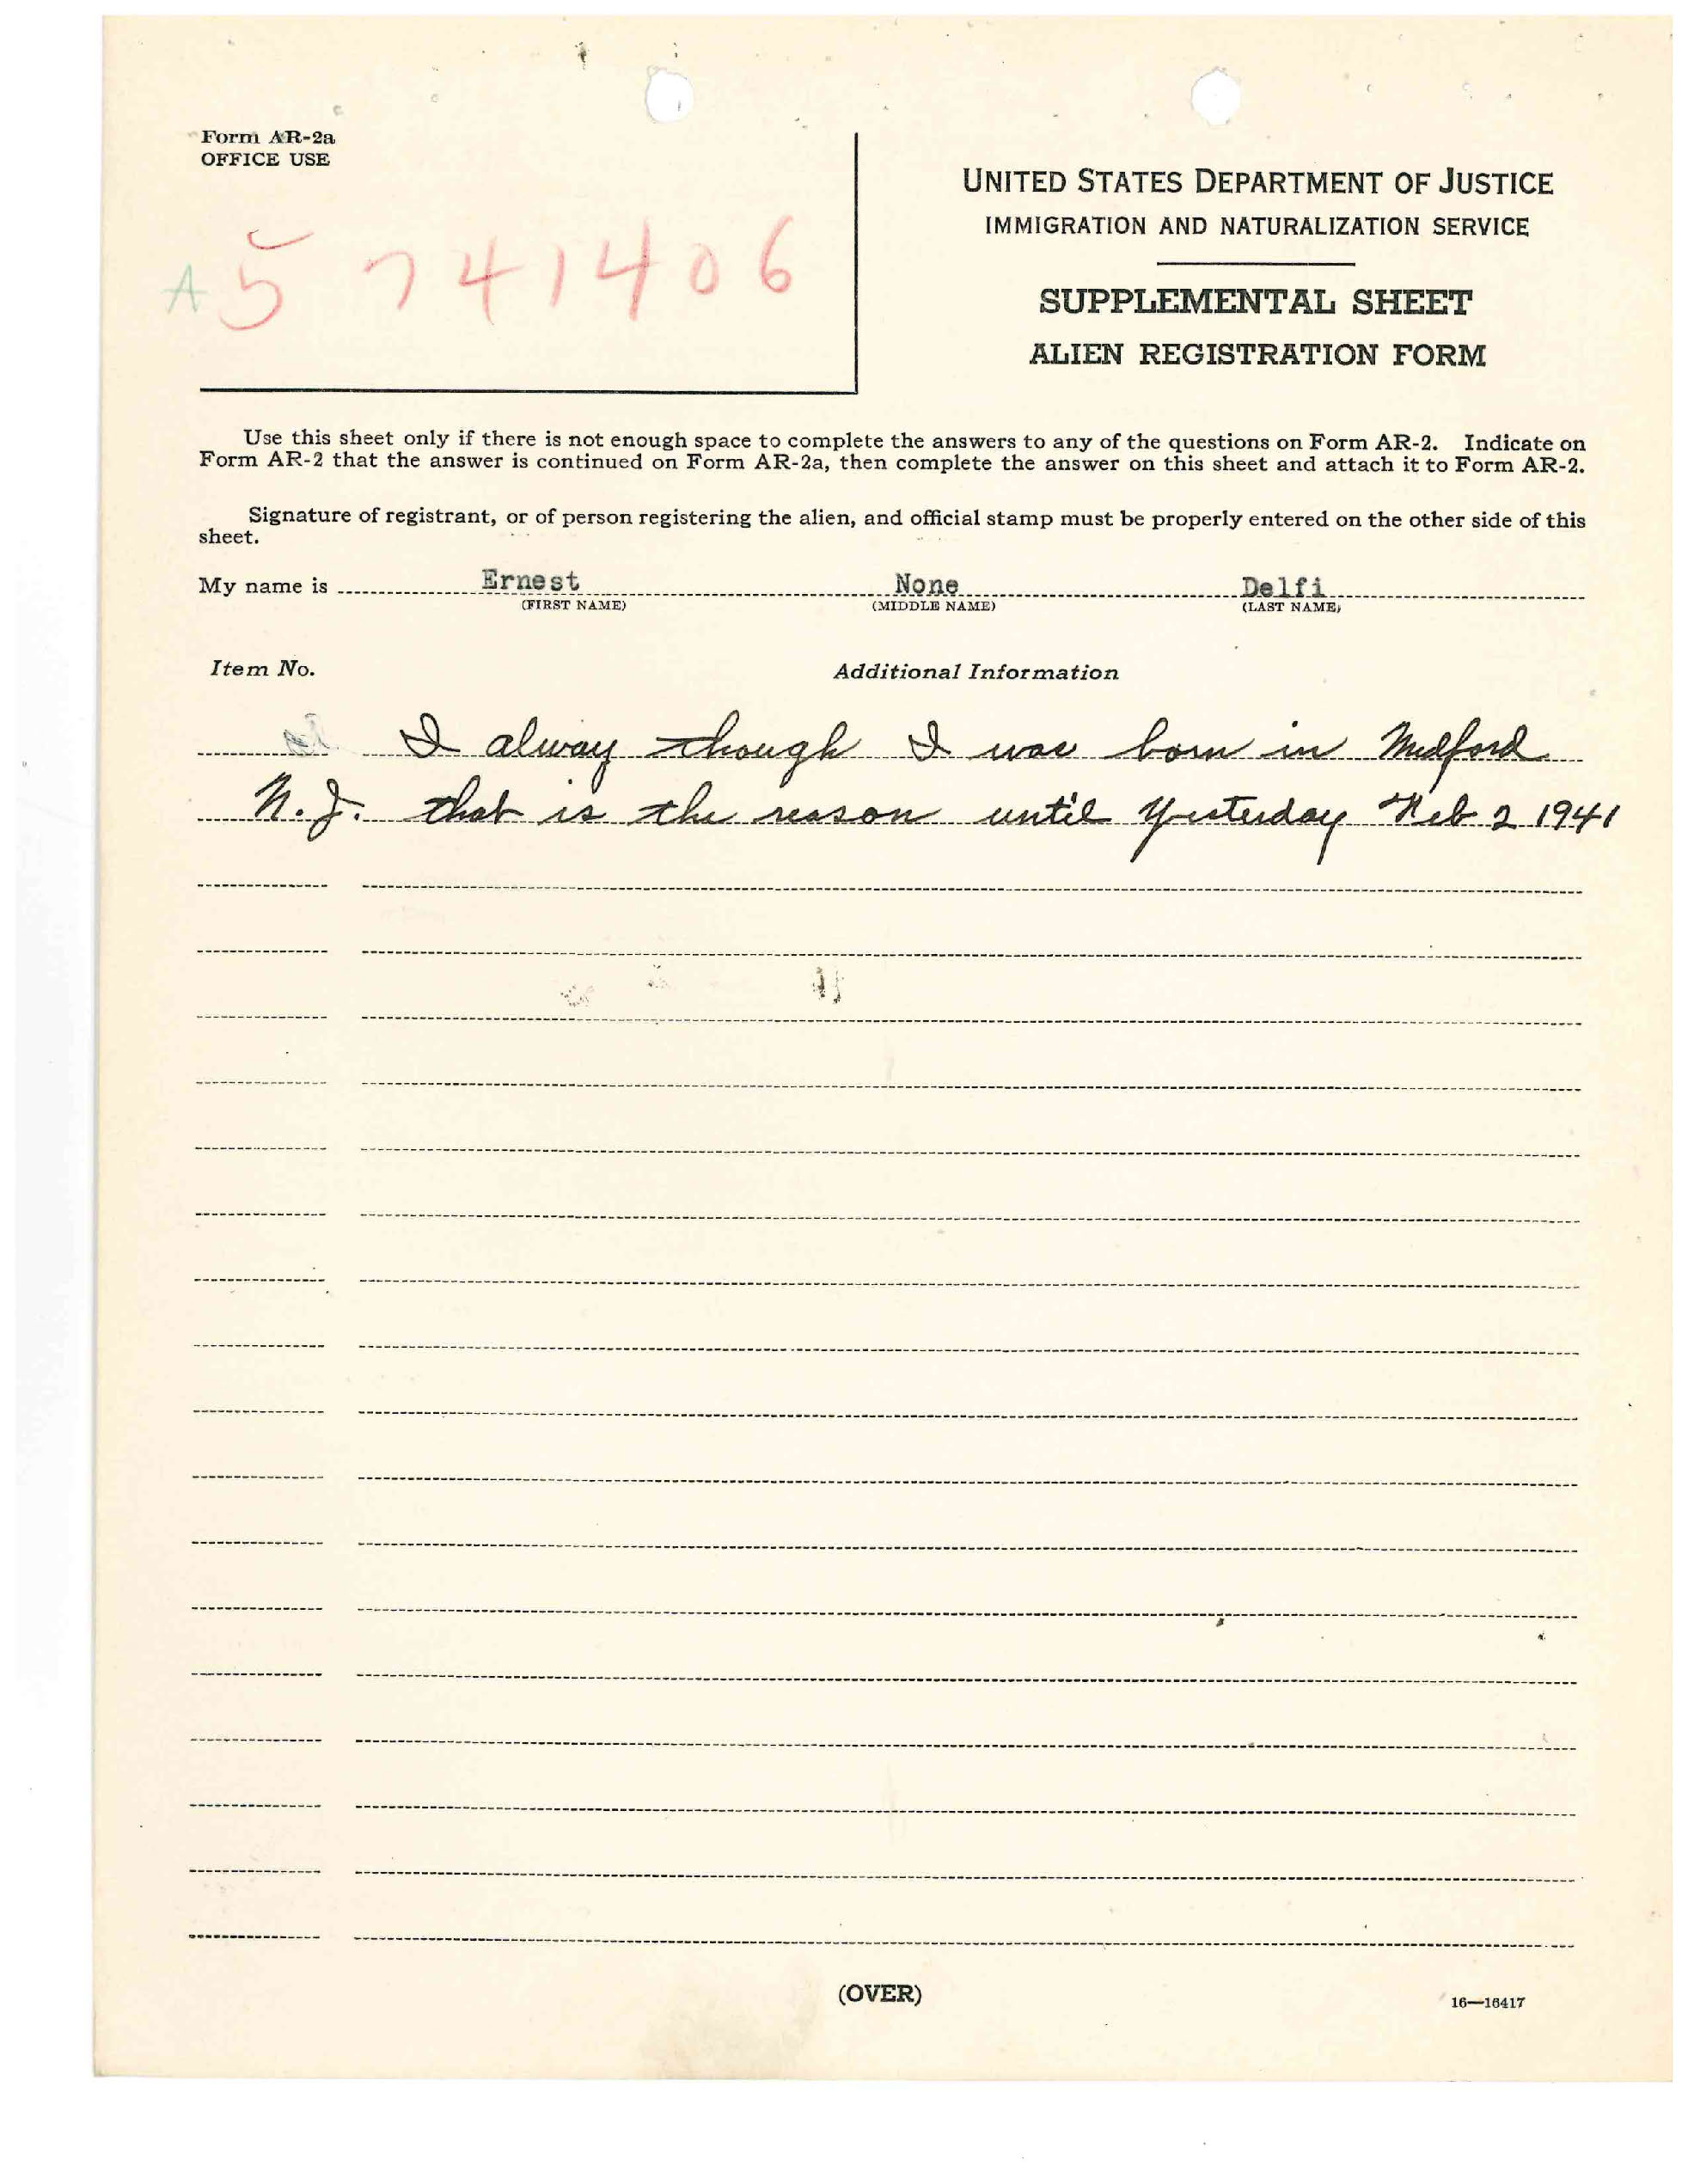 Form AR-2a
OFFICE USE
A5 741406
UNITED STATES DEPARTMENT OF JUSTICE
IMMIGRATION AND NATURALIZATION SERVICE
SUPPLEMENTAL SHEET
ALIEN REGISTRATION FORM
Use this sheet only if there is not enough space to complete the answers to any of the questions on Form AR-2. Indicate on
Form AR-2 that the answer is continued on Form AR-2a, then complete the answer on this sheet and attach it to Form AR-2.
Signature of registrant, or of person registering the alien, and official stamp must be properly entered on the other side of this
sheet.
My name is Ernest None Delfi
(FIRST NAME) (MIDDLE NAME) (LAST NAME)
Item No. Additional Information
I alway though I was born in
N.J. that is the reason until Yesterday Feb 2 1941
(OVER)
16—16417